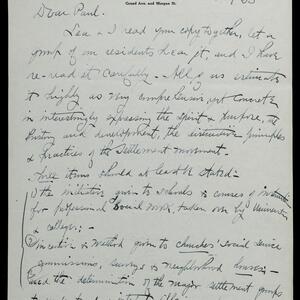 Grand Ave. and Morgan St.
Dear Paul.
Lea & I read your copy together, let a
group of our residents hear it, and I have
re-read it carefully. All of us estimate
it highly as very comprehensive yet concrete
in interestingly expressing the spirit & purpose, the
history and development, the distinctive principles
& practices of the Settlement movement.
Three items should at least be stated:
1) The initiative given to schools & courses of instruction
for professional social work, taken over by Universities
& colleges;
Incentive & method given to churches' social service
commissions, surveys & neighborhood houses
and the determination of the major settlement groups